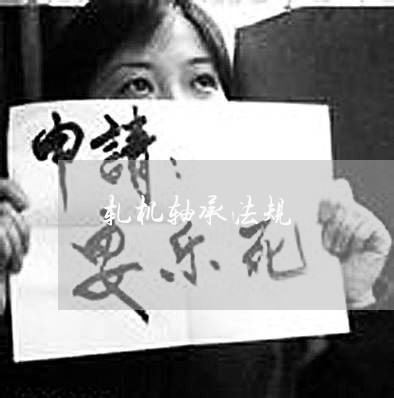 申請：
轧机轴承法规
安乐死